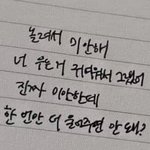 놀려서 미안해
너 우는거 귀여워서 그랬어
진짜 미안한데
한 번만 더 울어주면 안 돼?